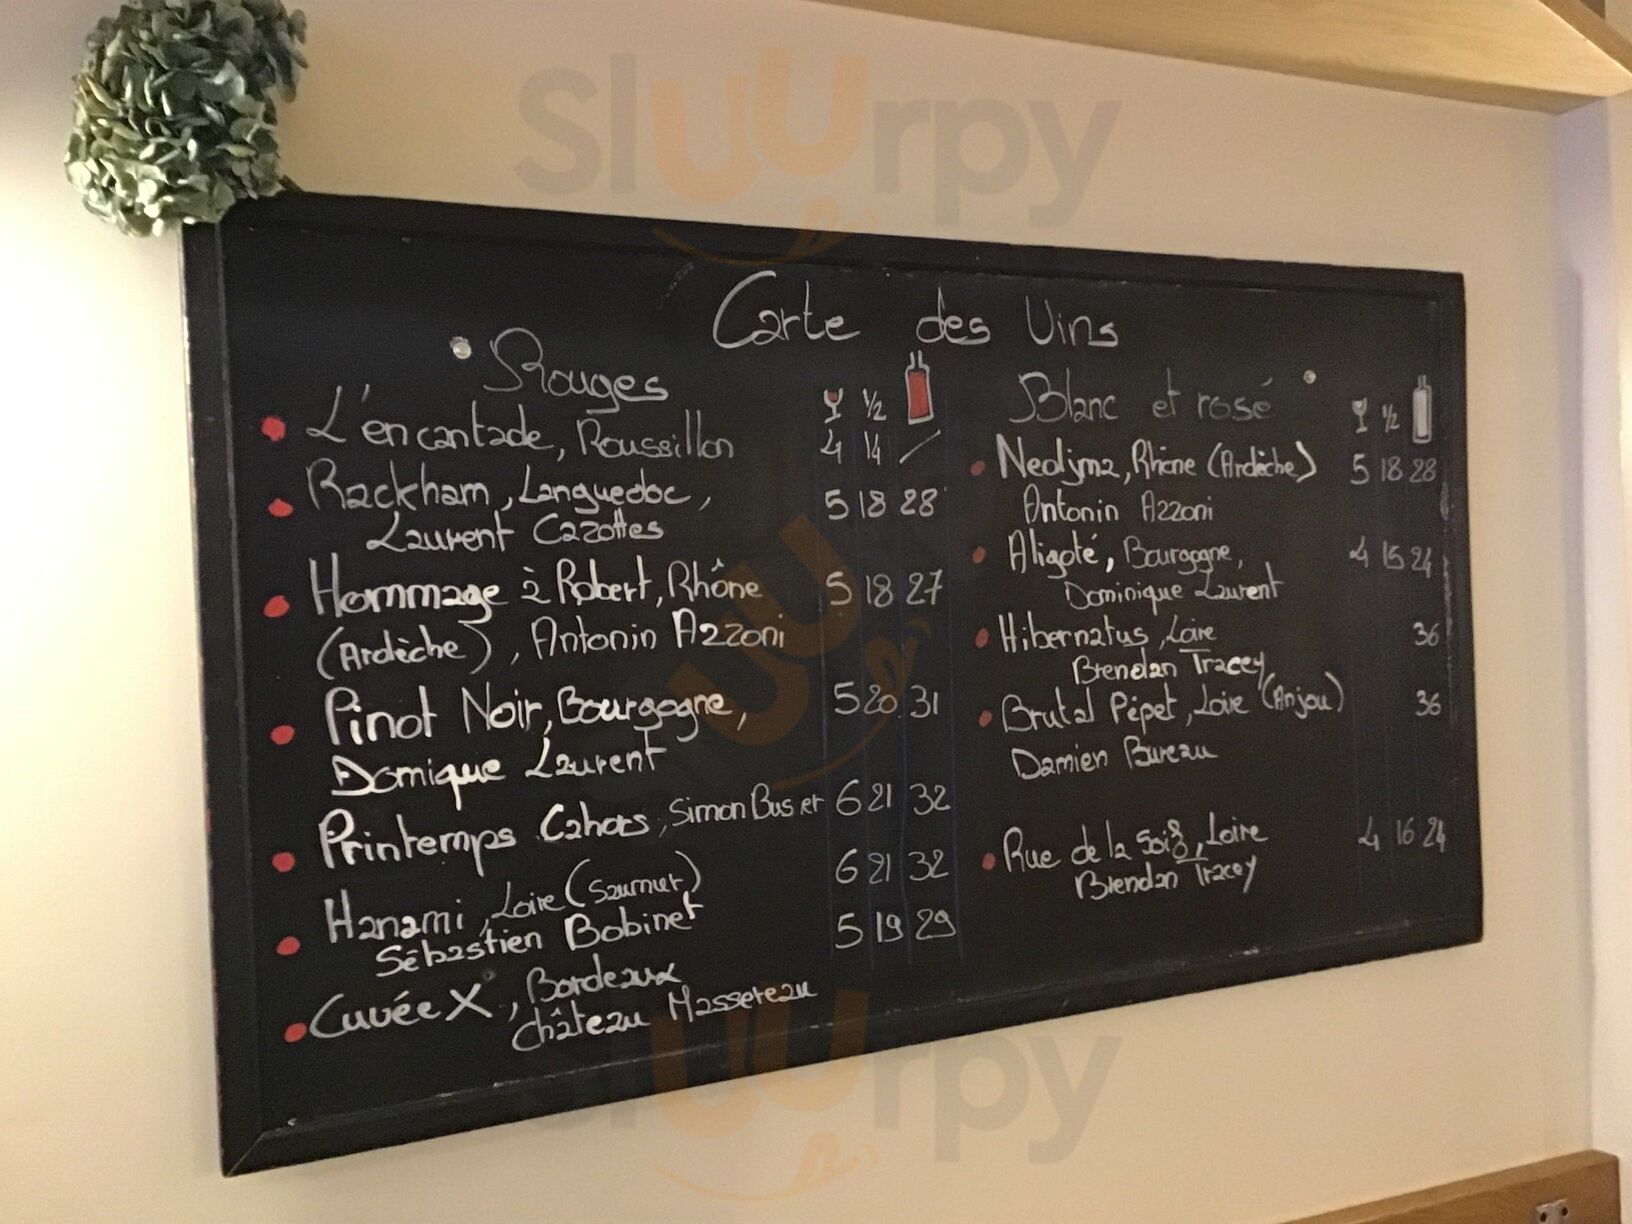 Sluurpy
Carte des Vins
Rouges
½
L'encantade, Roussillon 4 14 /
Rackham, Languedoc, 5 18 28
Laurent Cazottes
Hommage à Robert, Rhône 5 18 27
(Ardèche), Antonin Azzoni
Pinot Noir, Bourgogne, 5 20 31
Domique Laurent
Printemps Cahors, Simon Buser 6 21 32
Hanami, Loire (Saumur) 6 21 32
Sébastien Bobinet
Cuvée X, Bordeaux 5 19 29
château Massereau
Blanc et rosé
½
Neolyma, Rhône (Ardèche) 5 18 28
Antonin Azzoni
Aligoté, Bourgogne, 4 15 24
Dominique Laurent
Hibernatus, Loire 36
Brendan Tracey
Brutal Pépet, Loire (Anjou) 36
Damien Bureau
Rue de la Soif, Loire 4 16 24
Brendan Tracey
Sluurpy